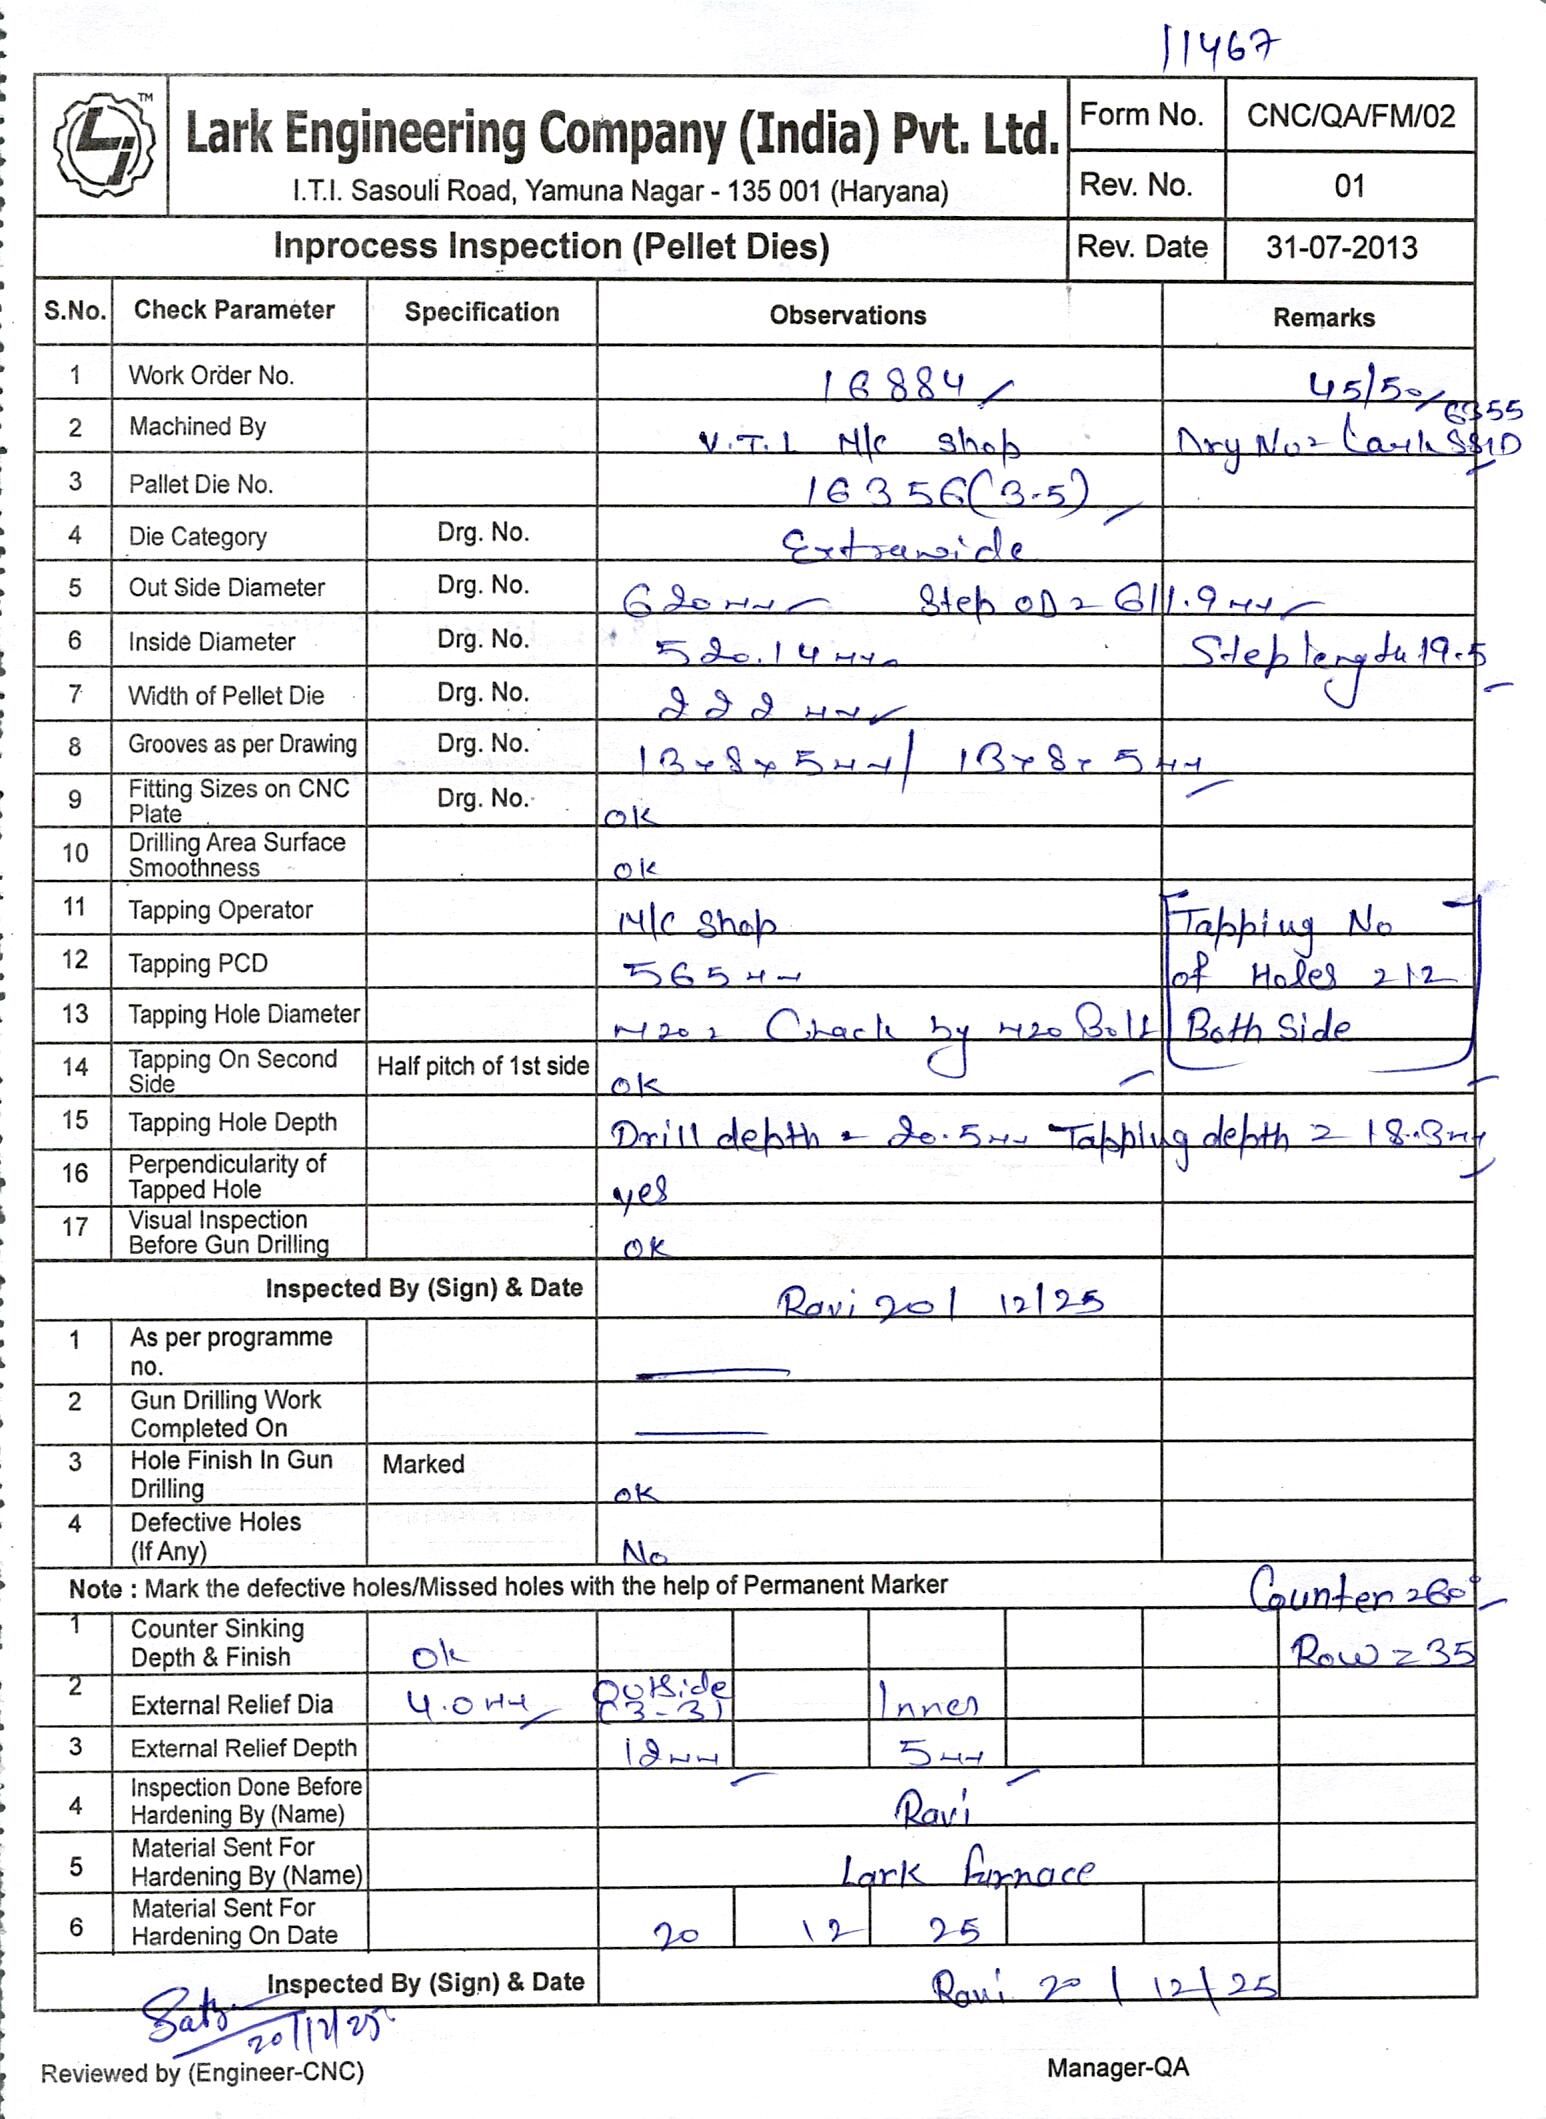 11467
TM
Lark Engineering Company (India) Pvt. Ltd.
I.T.I. Sasouli Road, Yamuna Nagar - 135 001 (Haryana)
Form No. CNC/QA/FM/02
Rev. No. 01
Inprocess Inspection (Pellet Dies) Rev. Date 31-07-2013
S.No. Check Parameter Specification Observations Remarks
1 Work Order No. 16884 45/50/
2 Machined By V.T.L M/c Shop Drg No = Lark 6355 SS1D
3 Pallet Die No. 16356(3.5)
4 Die Category Drg. No. Extrawide
5 Out Side Diameter Drg. No. 620mm Step OD = 611.9mm
6 Inside Diameter Drg. No. 520.14mm Step length 19.5
7 Width of Pellet Die Drg. No. 222 mm
8 Grooves as per Drawing Drg. No. 13x8x5mm/ 13x8x5mm
9 Fitting Sizes on CNC Plate Drg. No. ok
10 Drilling Area Surface Smoothness ok
11 Tapping Operator M/c Shop Tapping No
12 Tapping PCD 565mm of Holes = 12
13 Tapping Hole Diameter M20 = Chack by M20 Bolt Both Side
14 Tapping On Second Side Half pitch of 1st side ok
15 Tapping Hole Depth Drill depth = 20.5mm Tapping depth = 18.3mm
16 Perpendicularity of Tapped Hole yes
17 Visual Inspection Before Gun Drilling OK
Inspected By (Sign) & Date Ravi 20/12/25
1 As per programme no.
2 Gun Drilling Work Completed On
3 Hole Finish In Gun Drilling Marked ok
4 Defective Holes (If Any) No
Note : Mark the defective holes/Missed holes with the help of Permanent Marker Counter = 60°
1 Counter Sinking Depth & Finish Ok Row = 35
2 External Relief Dia 4.0mm Outside (3-3) Inner
3 External Relief Depth 12mm 5mm
4 Inspection Done Before Hardening By (Name) Ravi
5 Material Sent For Hardening By (Name) Lark Furnace
6 Material Sent For Hardening On Date 20 12 25
Inspected By (Sign) & Date Ravi 20/12/25
20/12/25
Reviewed by (Engineer-CNC) Manager-QA